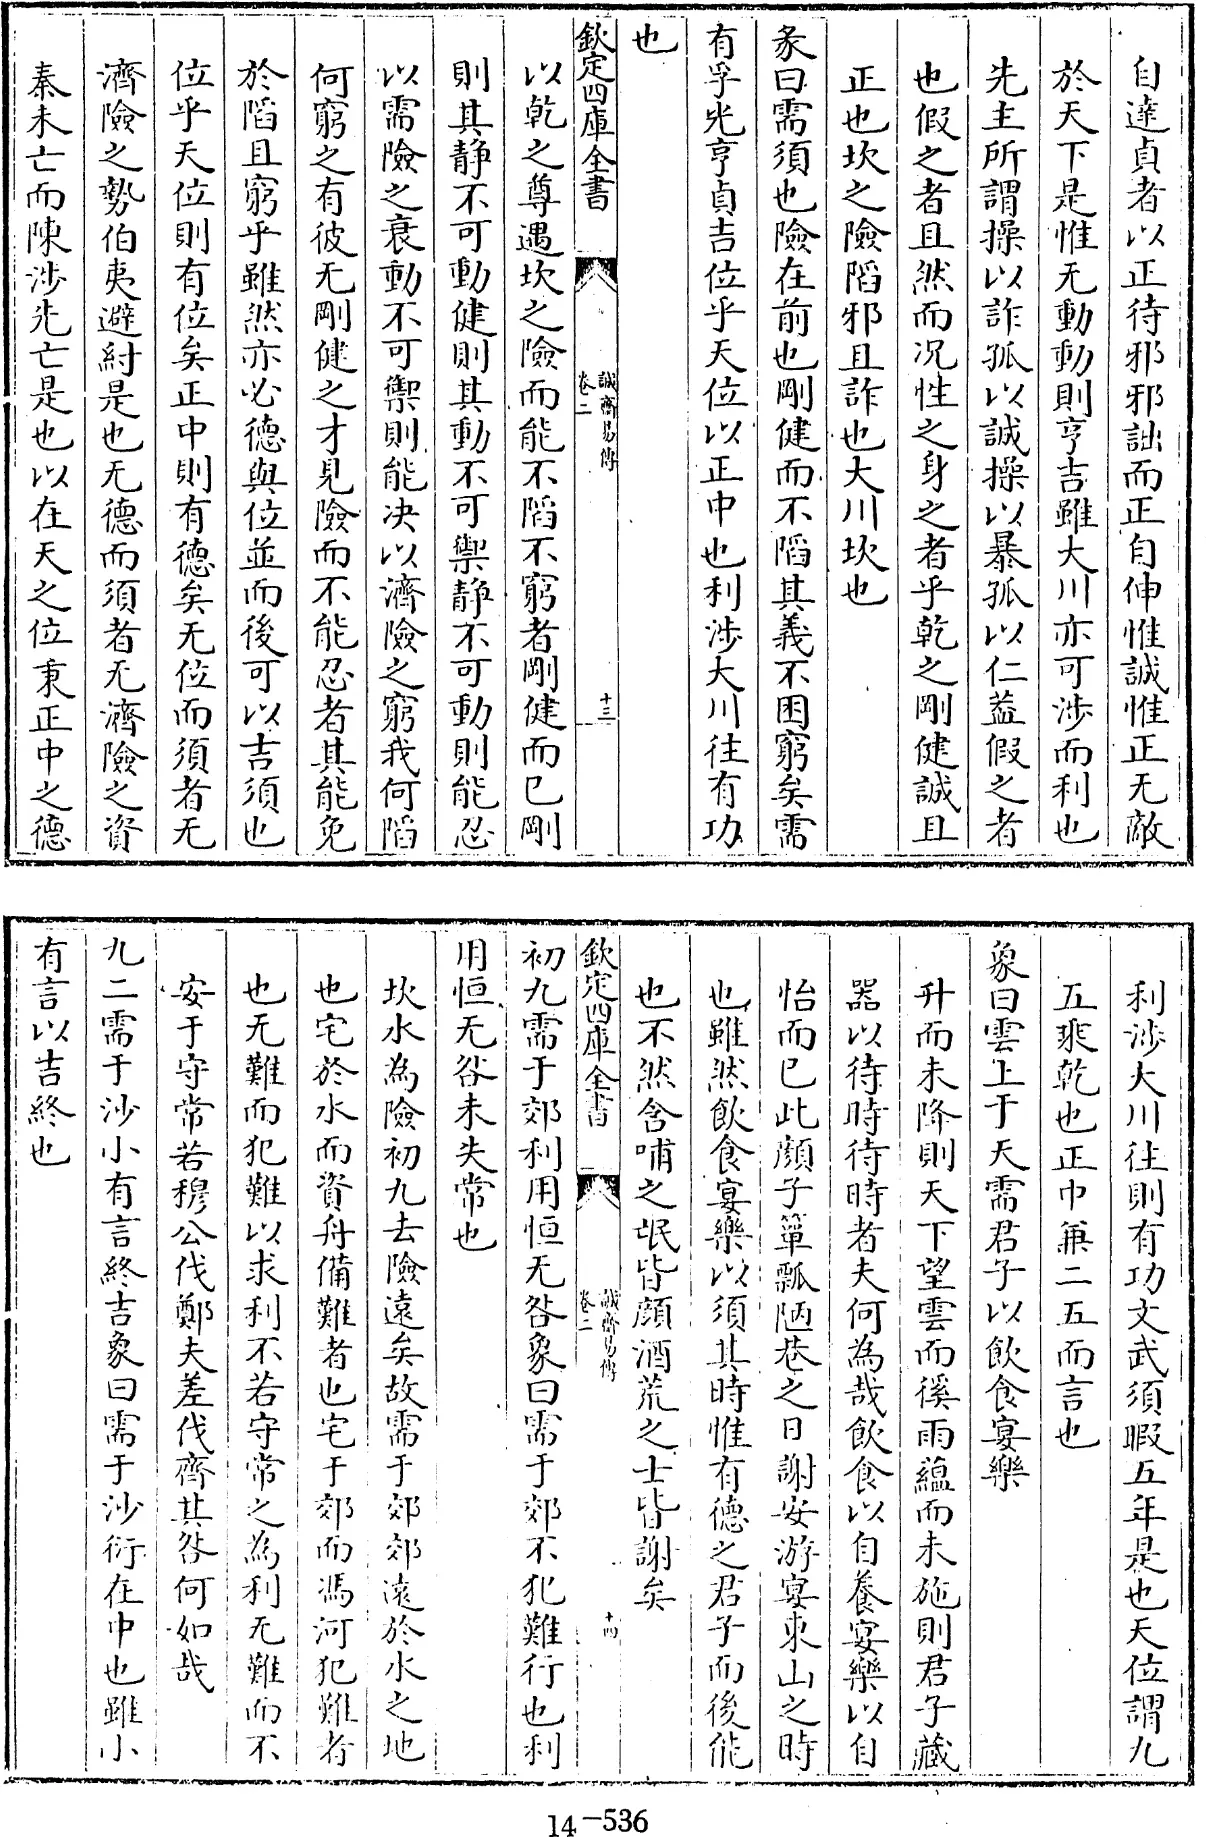 自達貞者以正待邪邪詘而正自伸惟誠惟正无敵
於天下是惟无動動則亨吉雖大川亦可涉而利也
先主所謂操以詐孤以誠操以暴孤以仁葢假之者
也假之者且然而况性之身之者乎乾之剛健誠且
正也坎之險陷邪且詐也大川坎也
彖曰需須也險在前也剛健而不陷其義不困窮矣需
有孚光亨貞吉位乎天位以正中也利涉大川往有功
也
欽定四庫全書
誠齋易傳
卷二
十三
以乾之尊遇坎之險而能不陷不窮者剛健而已剛
則其静不可動健則其動不可禦静不可動則能忍
以需險之衰動不可禦則能决以濟險之窮我何陷
何窮之有彼无剛健之才見險而不能忍者其能免
於陷且窮乎雖然亦必德與位並而後可以吉須也
位乎天位則有位矣正中則有德矣无位而須者无
濟險之勢伯夷避紂是也无德而須者无濟險之資
秦未亡而陳涉先亡是也以在天之位秉正中之德
利涉大川往則有功文武須暇五年是也天位謂九
五乘乾也正中兼二五而言也
象曰雲上于天需君子以飲食宴樂
升而未降則天下望雲而徯雨蘊而未施則君子藏
器以待時待時者夫何為哉飲食以自養宴樂以自
怡而已此顔子簞瓢陋巷之日謝安游宴東山之時
也雖然飲食宴樂以須其時惟有德之君子而後能
也不然含哺之氓皆顔酒荒之士皆謝矣
欽定四庫全書
誠齋易傳
卷二
十四
初九需于郊利用恒无咎象曰需于郊不犯難行也利
用恒无咎未失常也
坎水為險初九去險遠矣故需于郊郊遠於水之地
也宅於水而資舟備難者也宅于郊而馮河犯難者
也无難而犯難以求利不若守常之為利无難而不
安于守常若穆公伐鄭夫差伐齊其咎何如哉
九二需于沙小有言終吉象曰需于沙衍在中也雖小
有言以吉終也
14-536